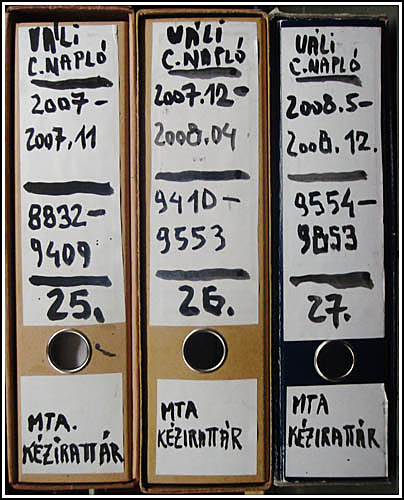 VÁLI
C.NAPLÓ
2007-
2007.11
8832-
9409
25.
MTA.
KÉZIRATTÁR
VÁLI
C.NAPLÓ
2007.12-
2008.04
9410-
9553
26.
MTA
KÉZIRATTÁR
VÁLI
C.NAPLÓ
2008.5-
2008.12.
9554-
9853
27.
MTA
KÉZIRATTÁR